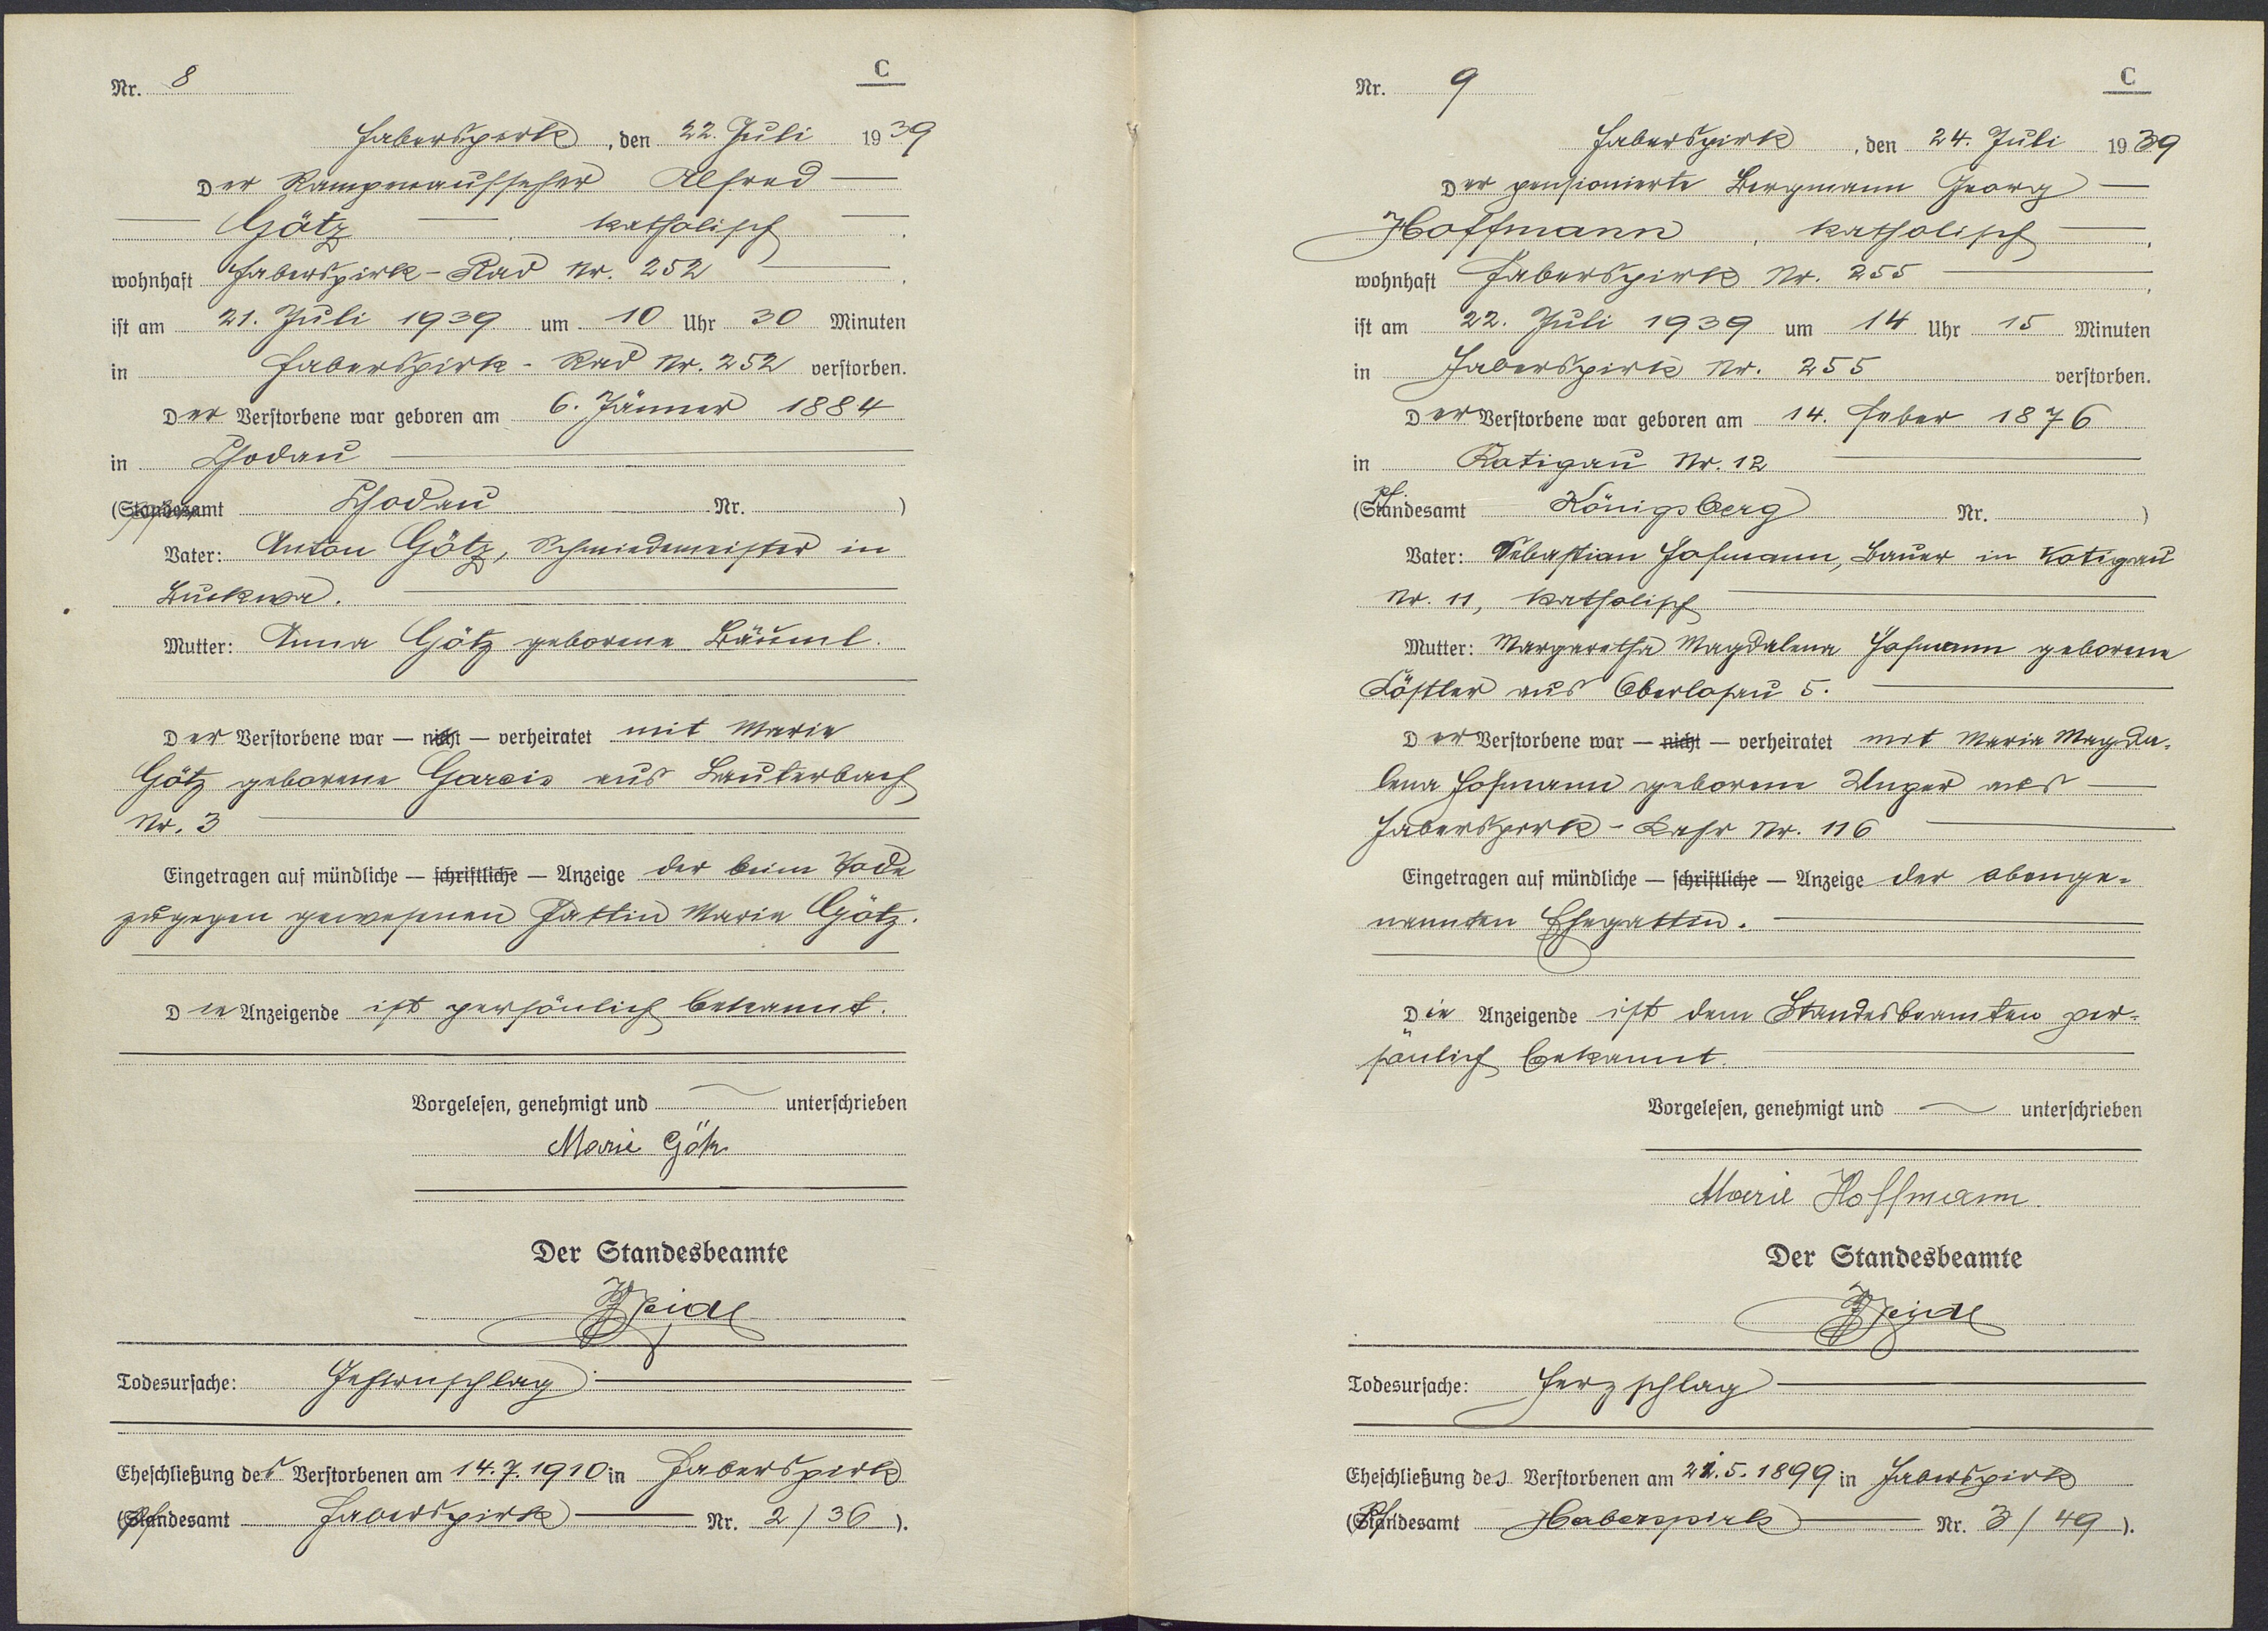 Nr. 8
C
Haberspirk, den 22. Juli 1939
Der Rampenaufseher Alfred
Götz, katholisch,
wohnhaft Haberspirk-Rad Nr. 252,
ist am 21. Juli 1939 um 10 Uhr 30 Minuten
in Haberspirk-Rad Nr. 252 verstorben.
Der Verstorbene war geboren am 6. Jänner 1884
in Chodau
(Standesamt Chodau Nr. )
Vater: Anton Götz, Schmiedemeister in
Buckwa.
Mutter: Anna Götz geborene Bäuml.
Der Verstorbene war — nicht — verheiratet mit Marie
Götz geborene Garcis aus Lauterbach
Nr. 3
Eingetragen auf mündliche — schriftliche — Anzeige der beim Tode
zugegen gewesenen Gattin Marie Götz.
Die Anzeigende ist persönlich bekannt.
Vorgelesen, genehmigt und unterschrieben
Marie Götz
Der Standesbeamte
Todesursache: Gehirnschlag
Eheschließung des Verstorbenen am 14.7.1910 in Haberspirk
(Standesamt Haberspirk Nr. 2/36).
Nr. 9
C
Haberspirk, den 24. Juli 1939
Der pensionierte Bergmann Georg
Hoffmann, katholisch,
wohnhaft Haberspirk Nr. 255,
ist am 22. Juli 1939 um 14 Uhr 15 Minuten
in Haberspirk Nr. 255 verstorben.
Der Verstorbene war geboren am 14. Feber 1876
in Katigau Nr. 12
(Standesamt Königsberg Nr. )
Vater: Sebastian Hofmann, Bauer in Kotigau
Nr. 11, katholisch
Mutter: Margaretha Magdalena Hofmann geborene
Köstler aus Oberlosau 5.
Der Verstorbene war — nicht — verheiratet mit Maria Magda-
lena Hofmann geborene Unger aus
Haberspirk-Lehr Nr. 116
Eingetragen auf mündliche — schriftliche — Anzeige der obenge-
nannten Ehegattin.
Die Anzeigende ist dem Standesbeamten per-
sönlich bekannt.
Vorgelesen, genehmigt und unterschrieben
Marie Hoffmann
Der Standesbeamte
Todesursache: Herzschlag
Eheschließung des Verstorbenen am 22.5.1899 in Haberspirk
(Standesamt Haberspirk Nr. 3/49).